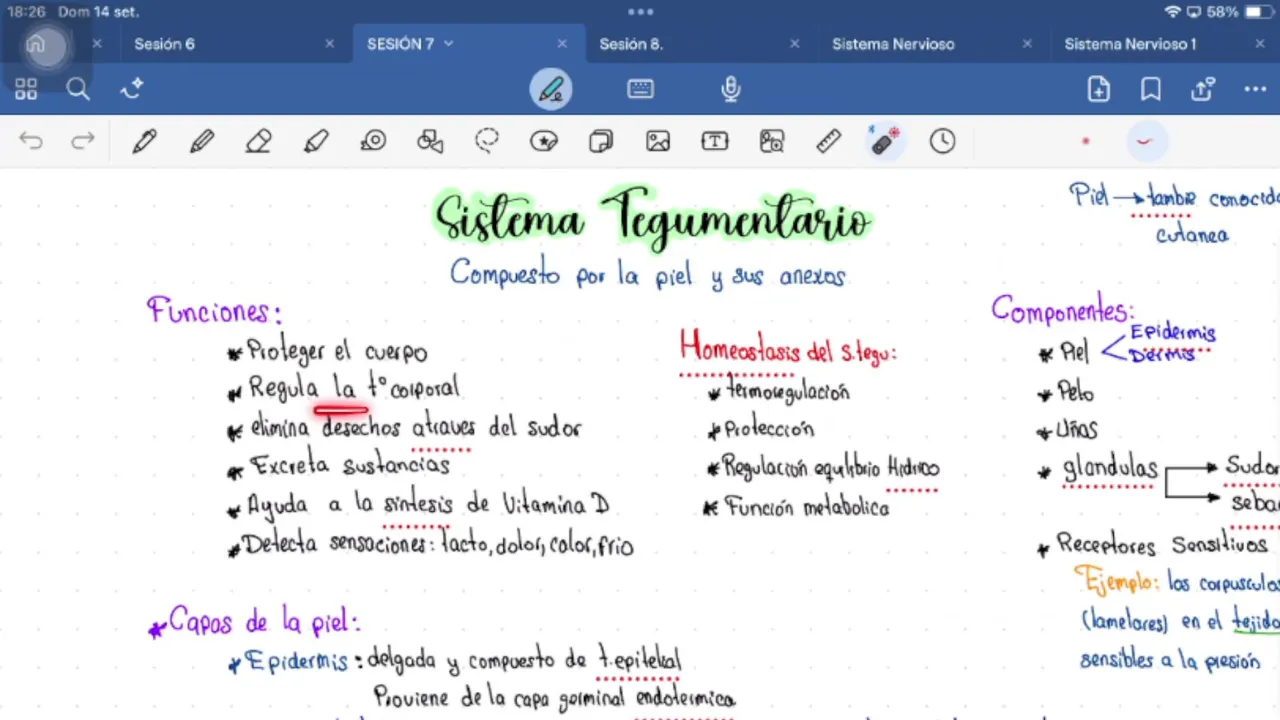 18:26 Dom 14 set.
58%
Sesión 6
SESIÓN 7
Sesión 8.
Sistema Nervioso
Sistema Nervioso 1
Sistema Tegumentario
Compuesto por la piel y sus anexos
Piel → tambie conocida
cutanea
Funciones:
* Proteger el cuerpo
* Regula la t° corporal
* elimina desechos atraves del sudor
* Excreta sustancias
* Ayuda a la síntesis de Vitamina D
* Detecta sensaciones: tacto, dolor, calor, frio
Homeostasis del s.tegu:
* termoregulación
* Protección
* Regulación equilibrio Hídrico
* Función metabolica
Componentes:
* Piel
Epidermis
Dermis
* Pelo
* Uñas
* glandulas
Sudor
seba
* Receptores Sensitivos
Ejemplo: los corpusculos
(lamelares) en el tejido
sensibles a la presión
* Capas de la piel:
* Epidermis: delgada y compuesto de t.epitelial
Proviene de la capa germinal endotermica